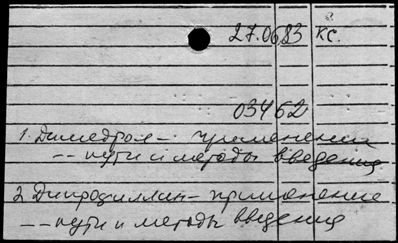 27.0683 кс.
03462
1. Димедрол — применение
— — пути и методы введения
2. Дипрофиллин — применение
— — пути и методы введения